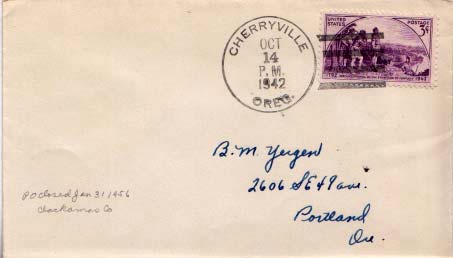 CHERRYVILLE
OCT
14
P.M.
1942
OREG.
UNITED STATES POSTAGE
3¢
1792 1942
B. M. Yergen
2606 SE 49 ave.
Portland
Ore.
PO closed Jan 31 1956
Clackamas Co